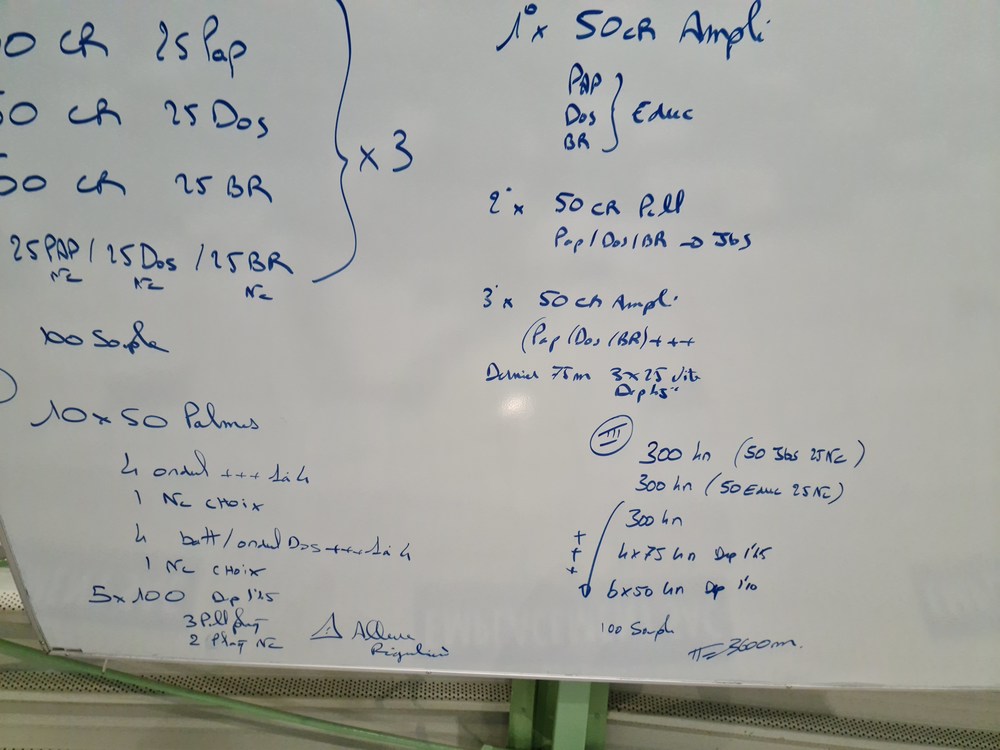 0 CR 25 Pap
50 CR 25 Dos
00 CR 25 BR
25 PAP / 25 Dos / 25 BR
NC NC NC
x 3
100 Souple
10 x 50 Palmes
4 ondul +++ 1 à 4
1 NC CHOIX
4 batt/ondul Dos +++ 1 à 4
1 NC CHOIX
5 x 100 Dep 1'45
3 Pull plaq
2 Plaq NC
⚠ Allure
Régulière
1° x 50 CR Ampli
PAP
Dos
BR
Educ
2° x 50 CR Pull
Pap / Dos / BR → Jbs
3° x 50 CR Ampli
(Pap / Dos / BR) +++
Dernier 75m 3 x 25 vite
Dep 45"
III
300 4n (50 Jbs 25 NC)
300 4n (50 Educ 25 NC)
300 4n
+
+
+
4 x 75 4n Dep 1'45
6 x 50 4n Dep 1'10
100 Souple
T = 3600m.